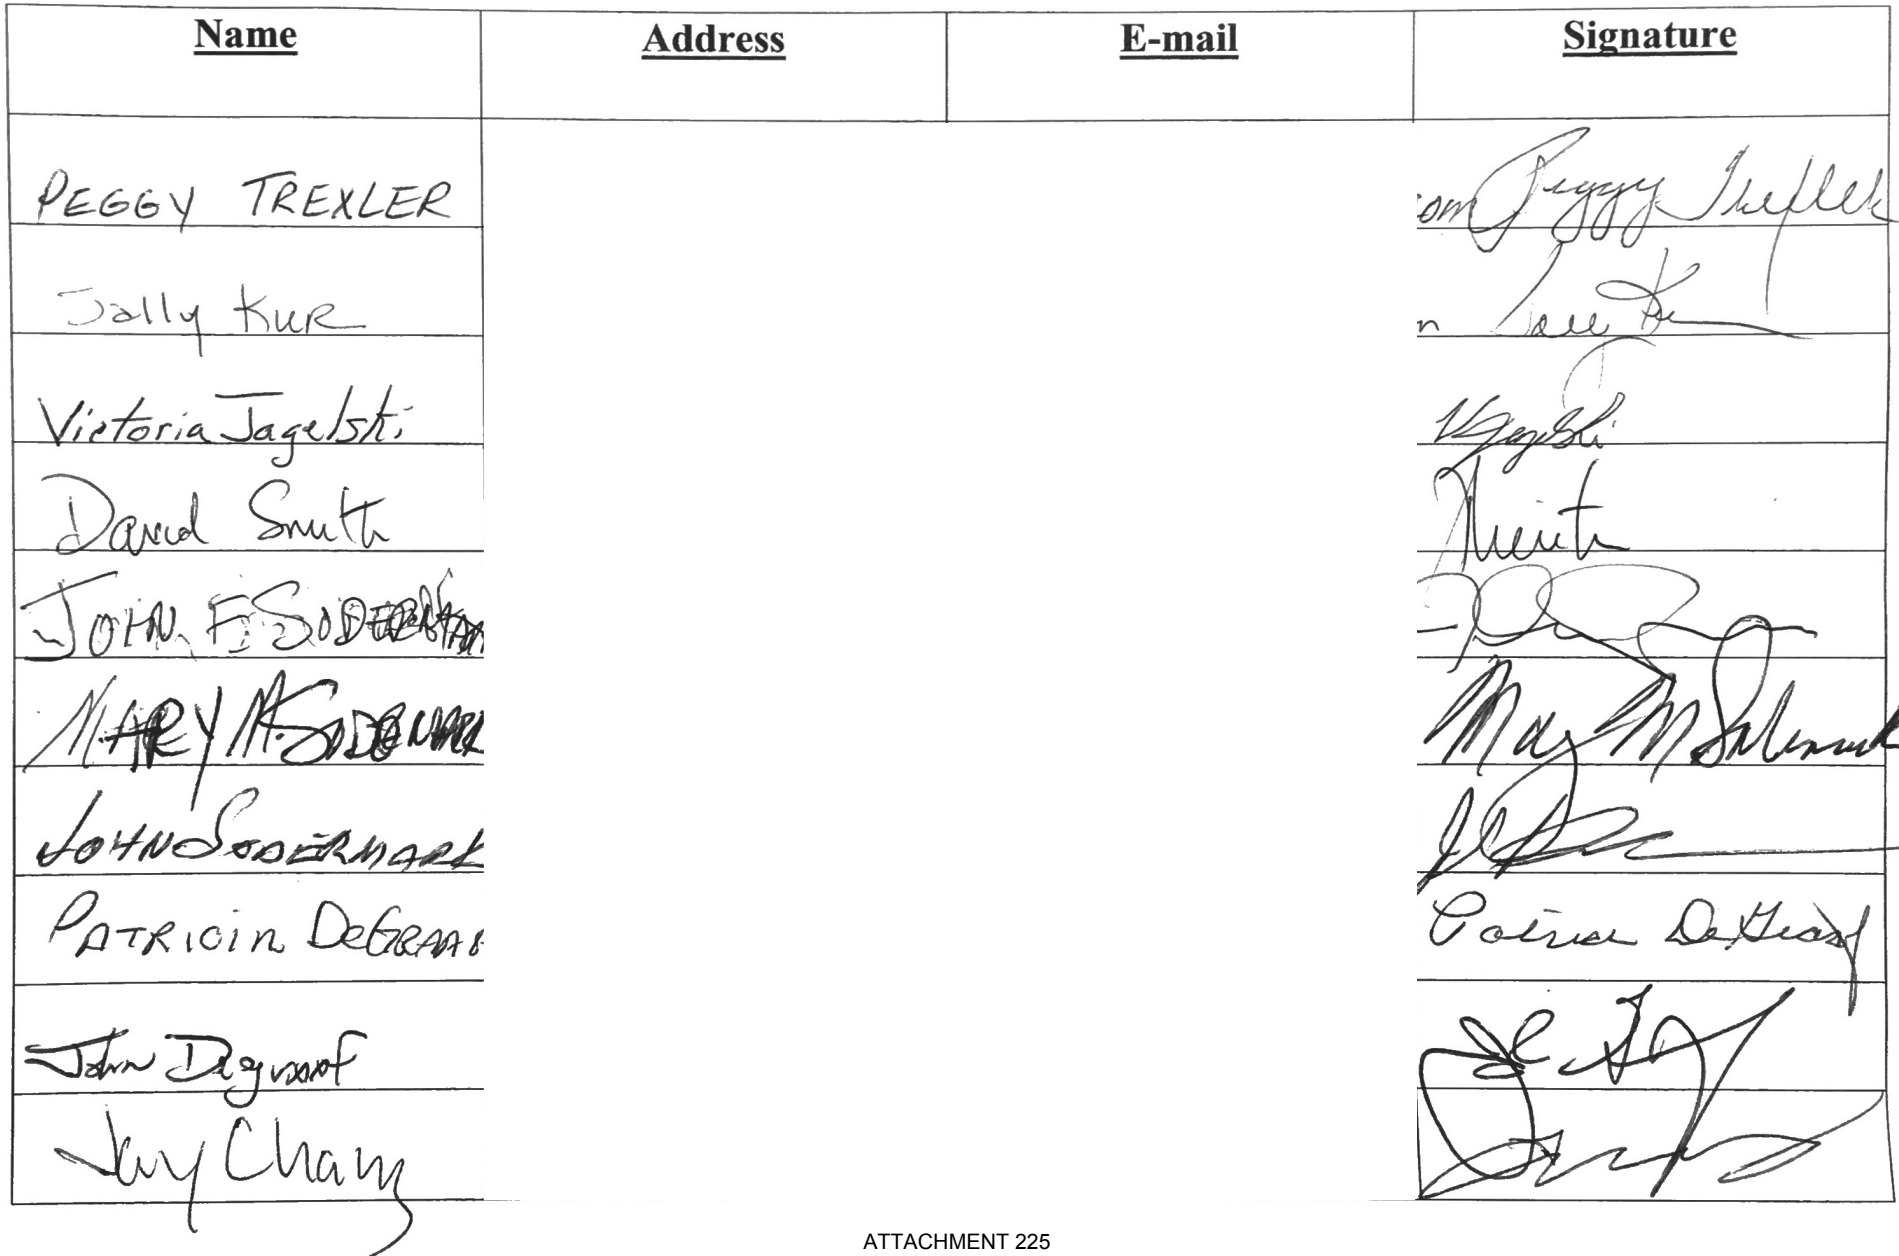 Name Address E-mail Signature
PEGGY TREXLER om Peggy Trexler
Sally Kur n
Victoria Jagelski
David Smith
JOHN F SODERMAR
MARY M. SODERMARK Mary M Sodermark
JOHN SODERMARK
PATRICIA DEGRAAF Patricia DeGraaf
John Degraaf
Jay Chang
ATTACHMENT 225